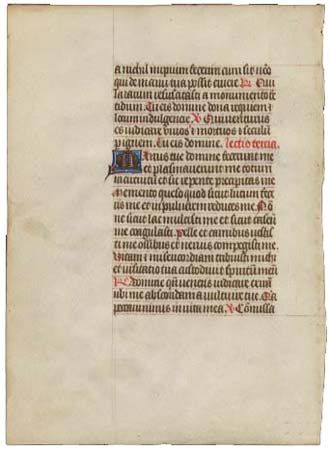 a nichil impium fecerim cum sit nēo
qui de manu tua possit eruere. R. Qui
lazarum resuscitasti a monumento fe
tidum. Tu eis domine dona requiem et
locum indulgencie. V. Qui venturus
es iudicare vivos et mortuos et seculū
p ignem. Tu eis domine. Lectio tercia.
Manus tue domine fecerunt me
et plasmaverunt me totum
in circuitu et sic repente precipitas me
Memento queso quod sicut lutum fece
ris me et in pulverem reduces me. Nō
ne sicut lac mulsisti me et sicut caseū
me coagulasti. Pelle et carnibus vestis
ti me ossibus et nervis compegisti me.
Vitam et misericordiam tribuisti michi
et visitatio tua custodivit spiritū meū
R. Domine qñ veneris iudicare terrā
ubi me abscondam a vultu ire tue. Quia
peccavi nimis in vita mea. V. Cōmissa